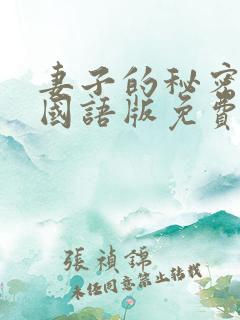 妻子的秘密
國語版免費
張禎錦
未經同意禁止轉載